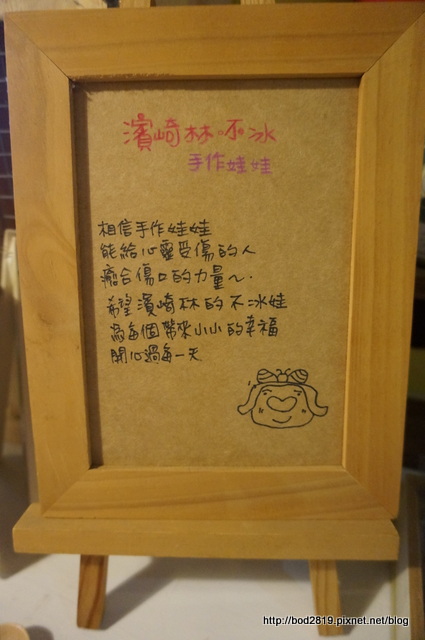 濱崎林。不冰
手作娃娃
相信手作娃娃
能給心靈受傷的人
癒合傷口的力量~.
希望濱崎林的不冰娃
為每個帶來小小的幸福
開心過每一天
http://bod2819.pixnet.net/blog